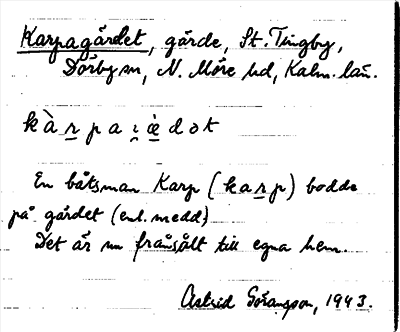 Karpagärdet, gärde, St. Tingby,
Dörby sn, N. Möre hd, Kalm. län.
kàr̲paɪ̯æ̀dət
En båtsman Karp (kar̲p) bodde
på gärdet (enl. medd.)
Det är nu frånsålt till egna hem.
Astrid Göransson, 1943.